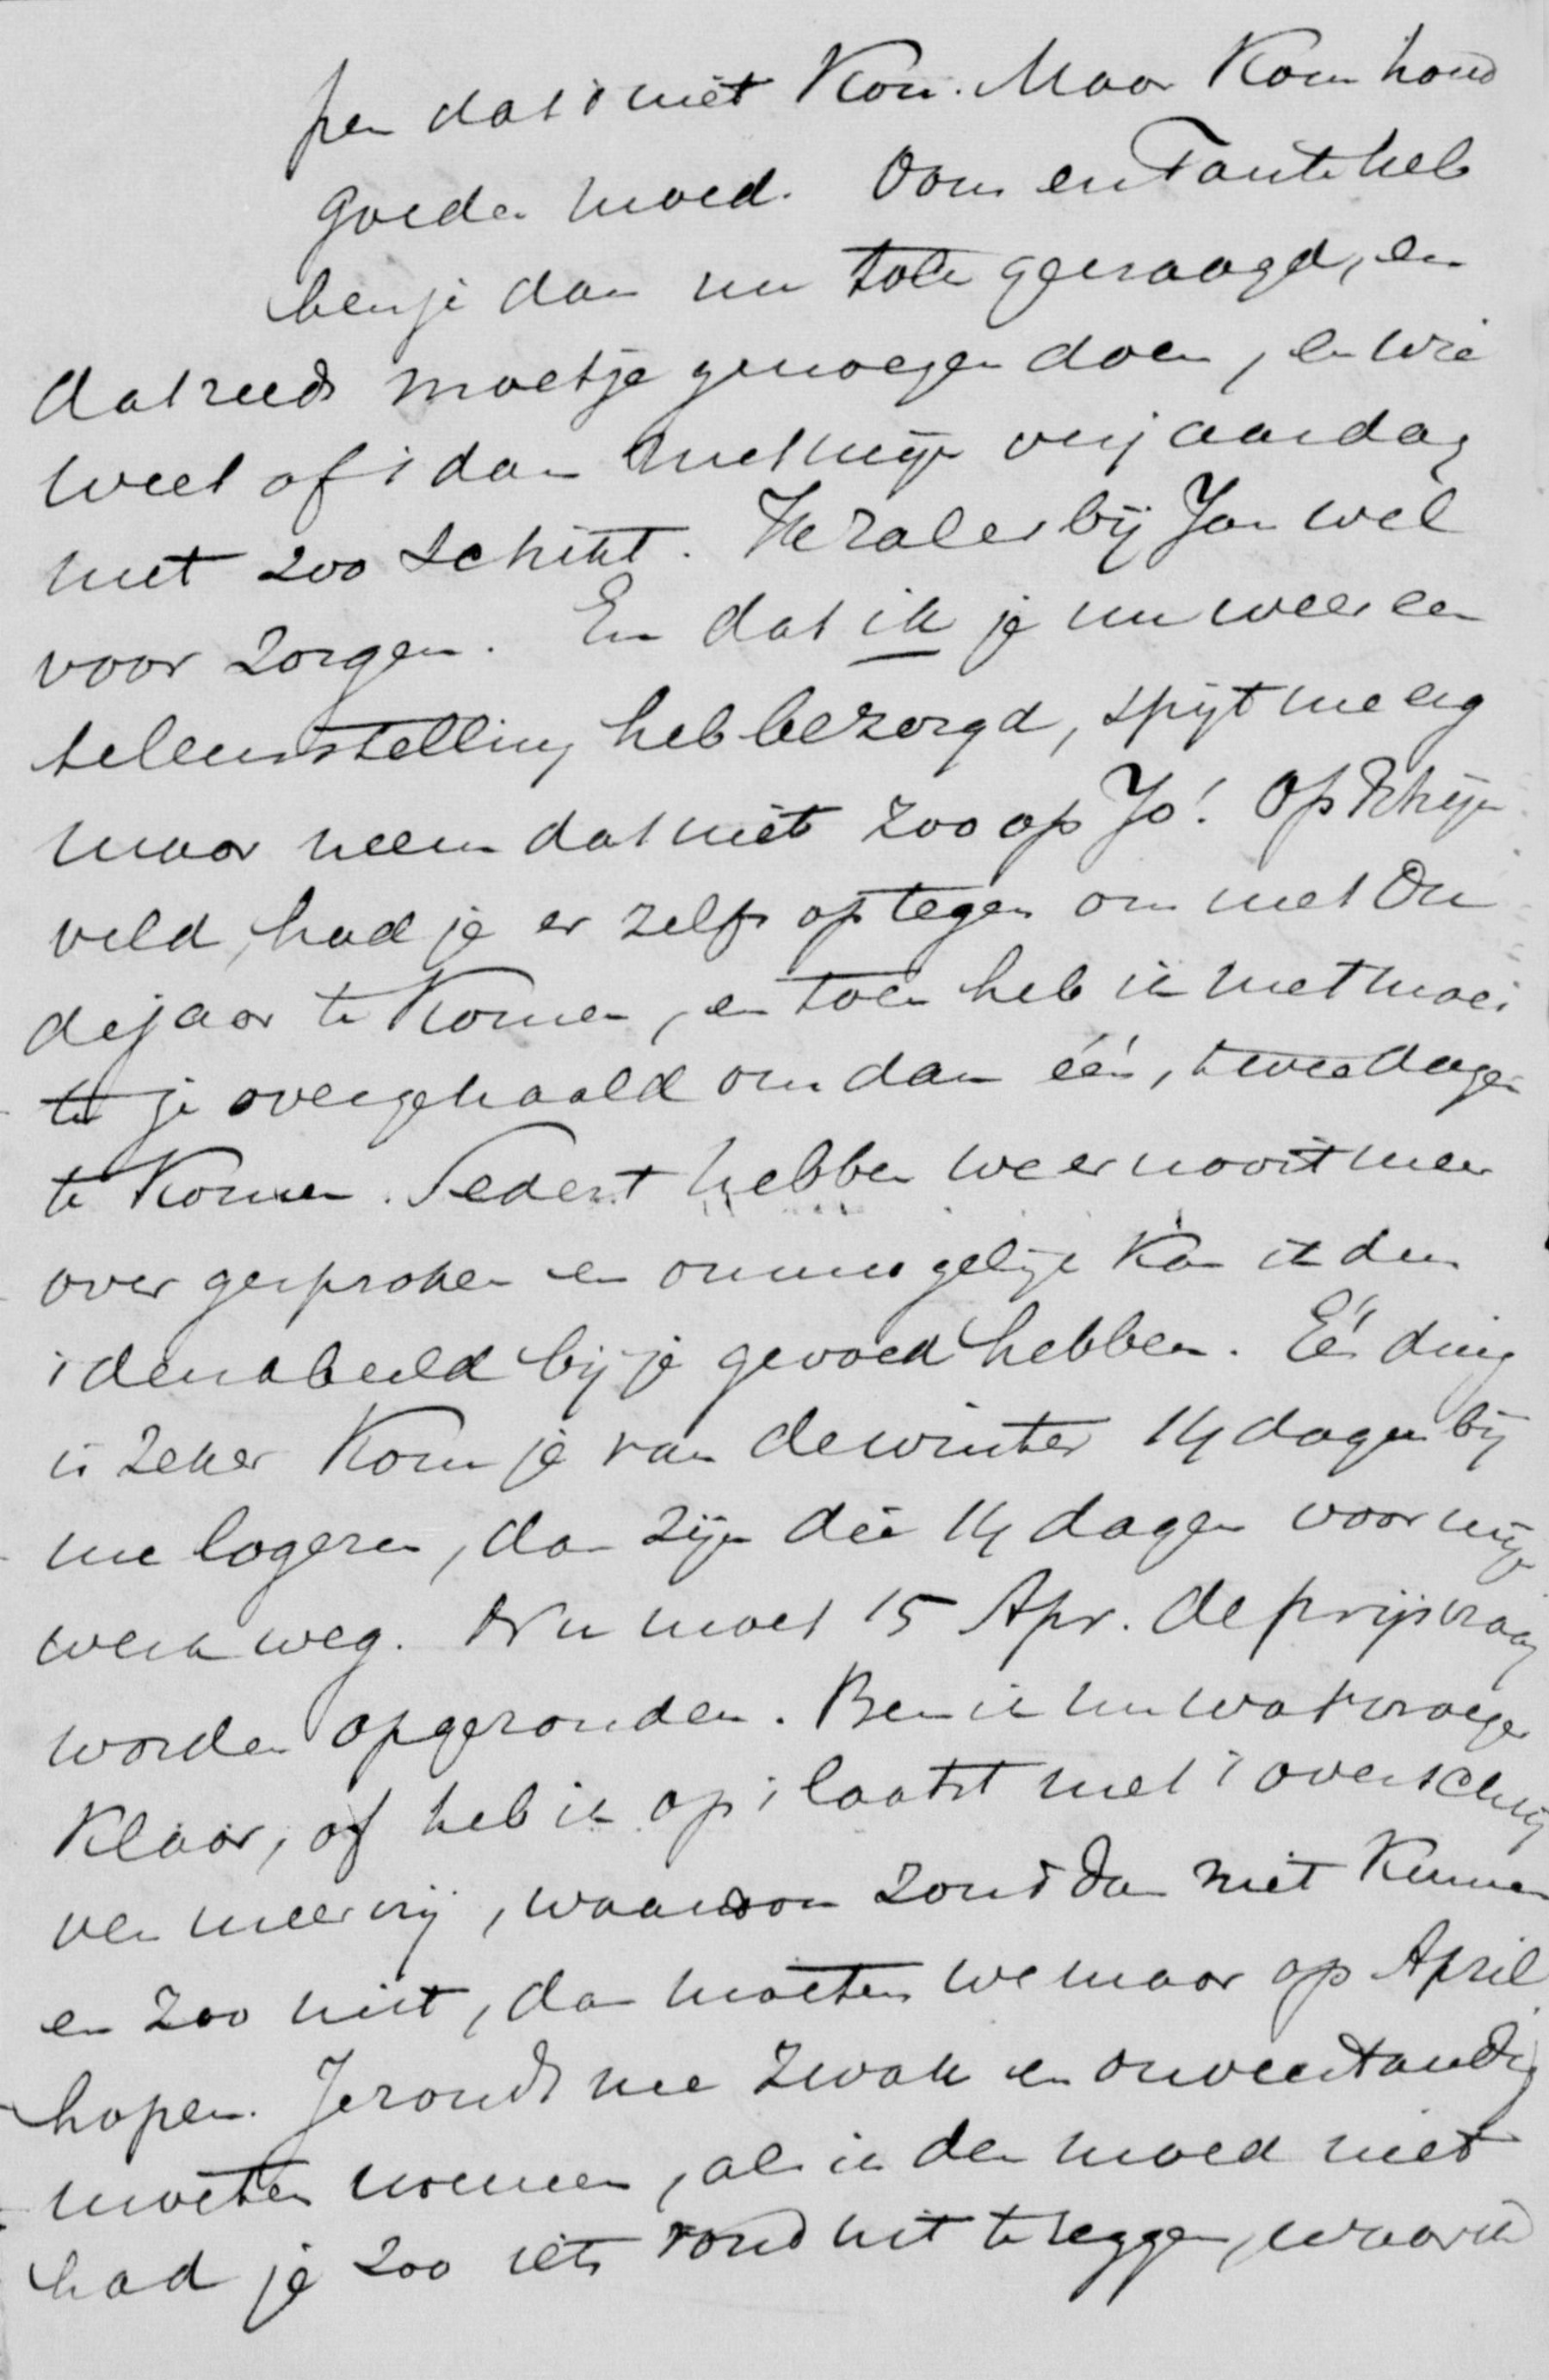 pen dat 't niet kon. Maar kom houd
goeden moed. Oom en Tante heb
ben je dan nu toch gevraagd, en
dat reeds moet je genoegen doen, en wie
weet of 't dan met mijn verjaardag
niet zoo schikt. Ik zal er bij Jan wel
voor zorgen. En dat ik je nu weer een
teleurstelling heb bezorgd, spijt me erg
maar neem dat niet zoo op Jo! Op Rhijn
veld, had je er zelfs op tegen om met Ou
dejaar te komen, en toen heb ik met moei
te je overgehaald om dan één, twee dagen
te komen. Sedert hebben we er nooit meer
over gesproken en onmogelijk kan ik dun
idenabeeld bij je gevoed hebben. Eén ding
is zeker kom je van de winter 14 dagen bij
me logeren, dan zijn die 14 dagen voor mijn
werk weg. Nu moet 15 Apr. de prijsvraag
worden opgezonden. Ben ik nu wat vroeger
klaar, of heb ik op 't laatst met 't overschrij
ven meer vrij, waarom zou 't dan niet kunnen
en zoo niet, dan moeten we maar op April
hopen. Je zoudt me zwak en onverstandig
moeten noemen, als ik den moed niet
had je zoo iets rond uit te zeggen, waar ik